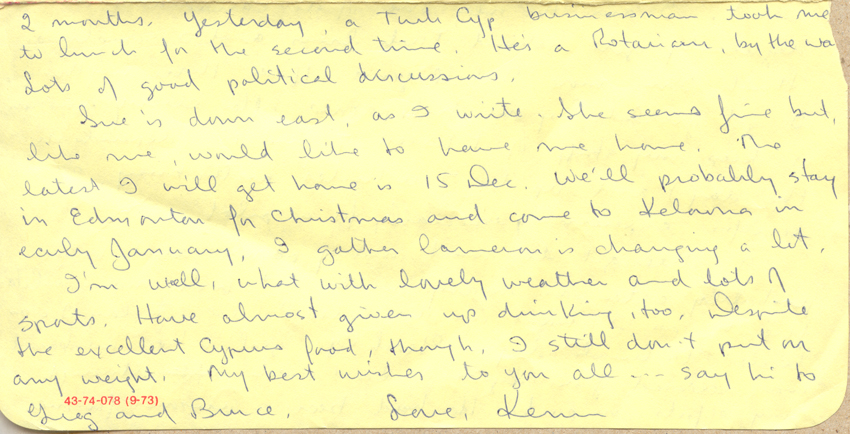 2 months. Yesterday, a Turk Cyp businessman took me
to lunch for the second time. He's a Rotarian, by the wa
Lots of good political discussions.
Sue is down east, as I write. She seems fine but,
like me, would like to have me home. The
latest I will get home is 15 Dec. We'll probably stay
in Edmonton for Christmas and come to Kelowna in
early January, I gather Cameron is changing a lot.
I'm well, what with lovely weather and lots of
sports. Have almost given up drinking, too. Despite
the excellent Cyprus food, though, I still don't put on
any weight. My best wishes to you all ... say hi to
43-74-078 (9-73)
Greg and Bruce. Love, Kevin